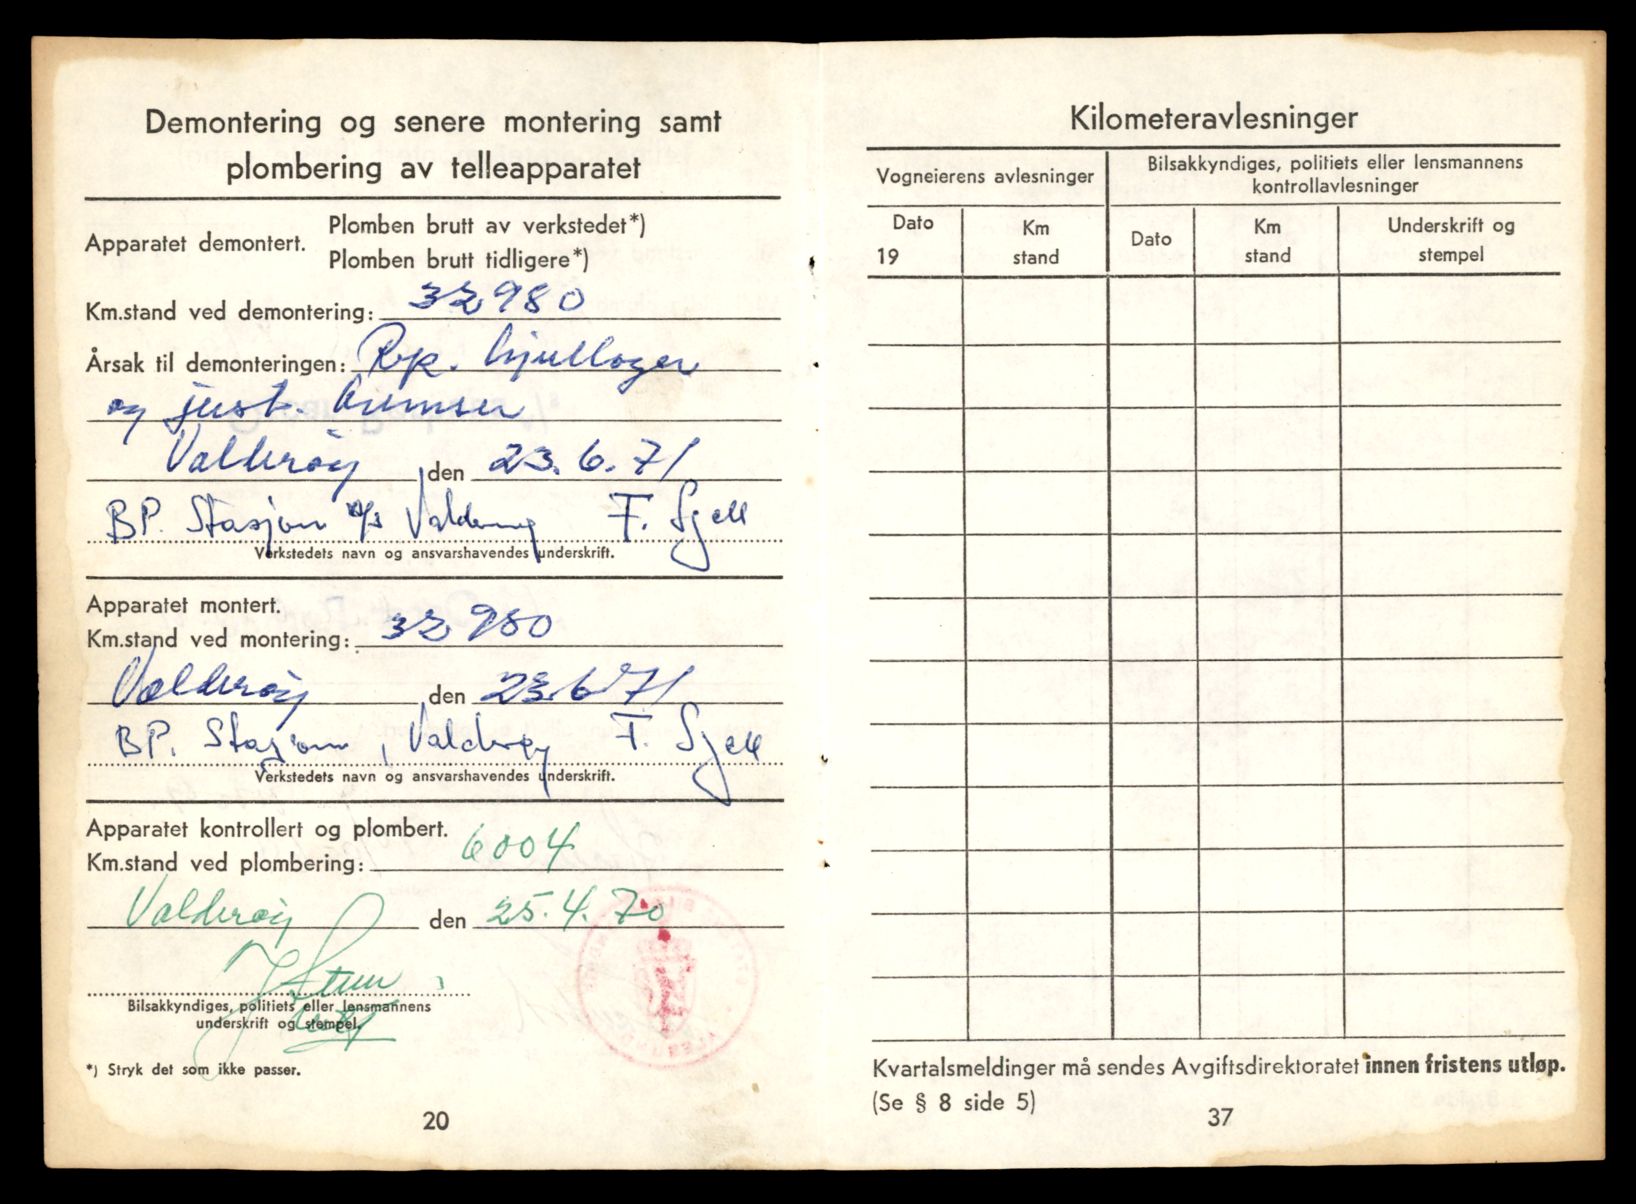 Demontering og senere montering samt
plombering av telleapparatet
Apparatet demontert.
Plomben brutt av verkstedet*)
Plomben brutt tidligere*)
Km.stand ved demontering: 32980
Årsak til demonteringen: Rep. hjullager
og just. bremser
Valderøy den 23.6.71
BP. Stasjon a/s Valderøy F.
Verkstedets navn og ansvarshavendes underskrift.
Apparatet montert.
Km.stand ved montering: 32980
Valderøy den 23.6.71
BP. Stasjon, Valderøy F.
Verkstedets navn og ansvarshavendes underskrift.
Apparatet kontrollert og plombert.
Km.stand ved plombering: 6004
Valderøy den 25.4.70
Bilsakkyndiges, politiets eller lensmannens
underskrift og stempel.
*) Stryk det som ikke passer.
20
Kilometeravlesninger
Vogneierens avlesninger
Bilsakkyndiges, politiets eller lensmannens
kontrollavlesninger
Dato
19
Km
stand
Dato
Km
stand
Underskrift og
stempel
Kvartalsmeldinger må sendes Avgiftsdirektoratet innen fristens utløp.
(Se § 8 side 5)
37